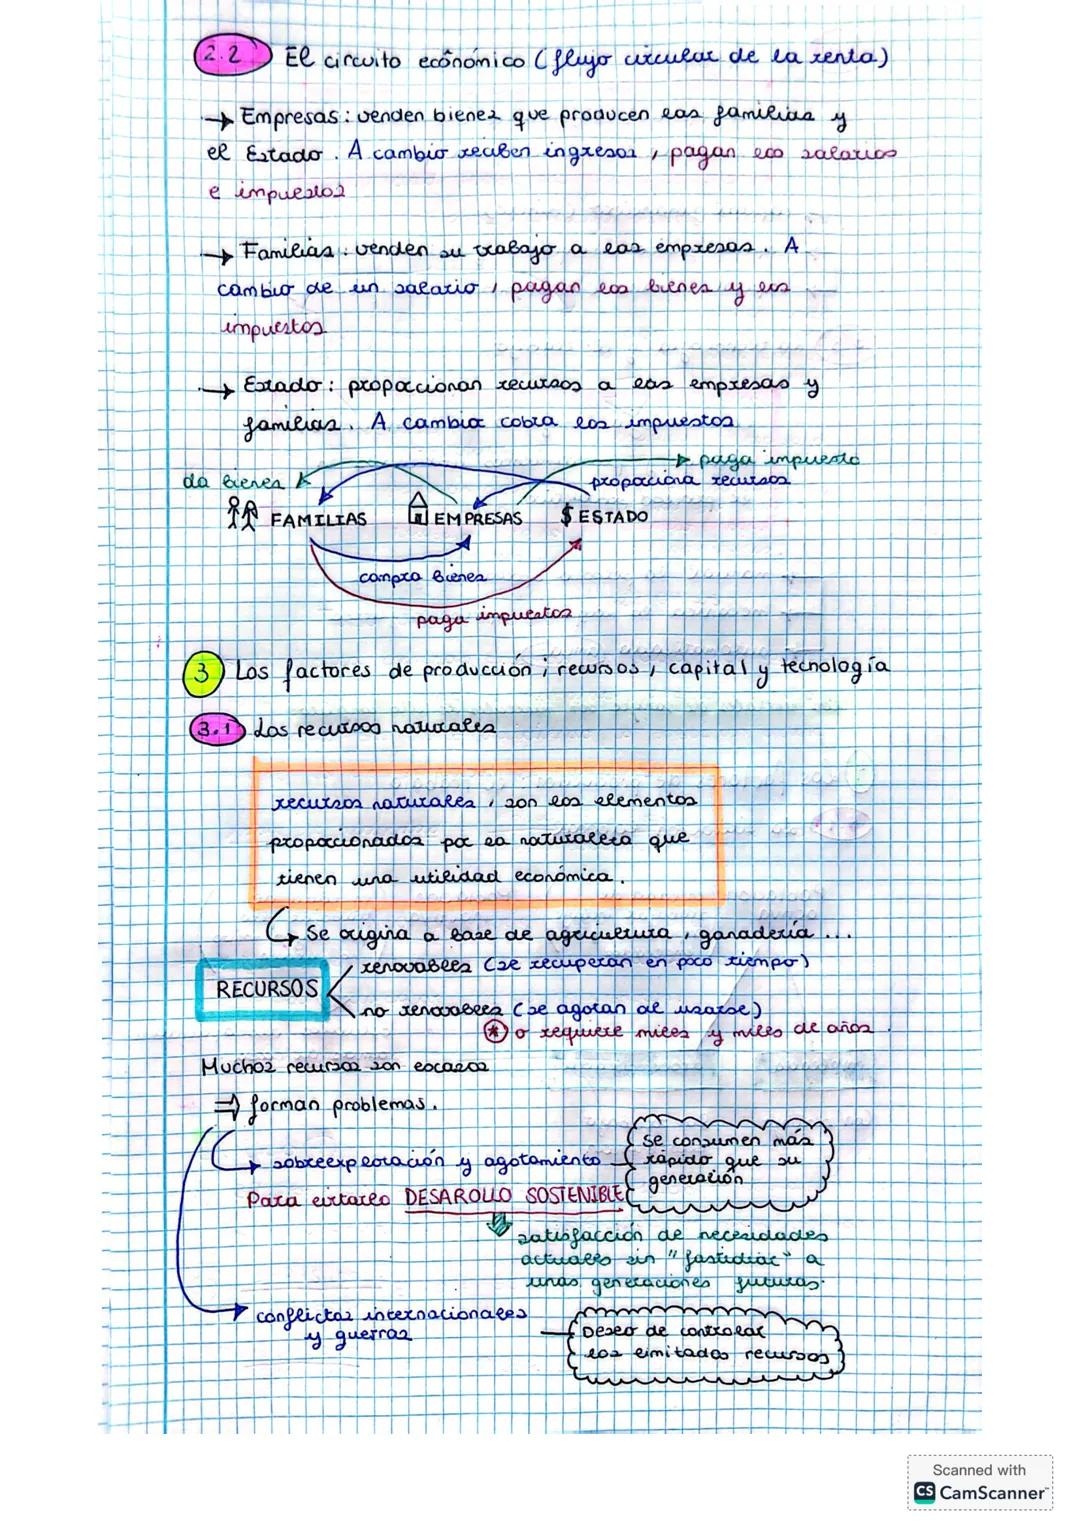 2.2 El circuito económico (flujo circular de la renta)
→ Empresas: venden bienes que producen las familias y
el Estado. A cambio reciben ingresos, pagan los salarios
e impuestos
→ Familias: venden su trabajo a las empresas. A
cambio de un salario, pagan los bienes y los
impuestos
→ Estado: proporcionan recursos a las empresas y
familias. A cambio cobra los impuestos
paga impuesto
da bienes
proporciona recursos
FAMILIAS EMPRESAS $ ESTADO
compra bienes
paga impuestos
3 Los factores de producción; recursos, capital y tecnología
3.1 Los recursos naturales
recursos naturales, son los elementos
proporcionados por la naturaleza que
tienen una utilidad económica.
Se origina a base de agricultura, ganadería ...
renovables (se recuperan en poco tiempo)
RECURSOS
no renovables (se agotan al usarse)
* o requiere miles y miles de años.
Muchos recursos son escasos
⇒ forman problemas.
Se consumen más
sobreexplotación y agotamiento
rápido que su
generación
Para evitarlo DESAROLLO SOSTENIBLE
satisfacción de necesidades
actuales sin "fastidiar" a
unas generaciones futuras.
conflictos internacionales
y guerras
Deseo de controlar
los limitados recursos
Scanned with
CS CamScanner